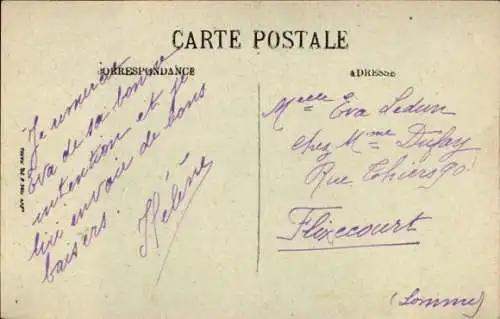 CARTE POSTALE
CORRESPONDANCE
ADRESSE
Je remercie
Eva de sa bonne
intention et je
lui envoie de bons
baisers.
Hélène
Melle Eva Ledun
chez Mme Dufay
Rue Thiers 90
Flixecourt
(Somme)